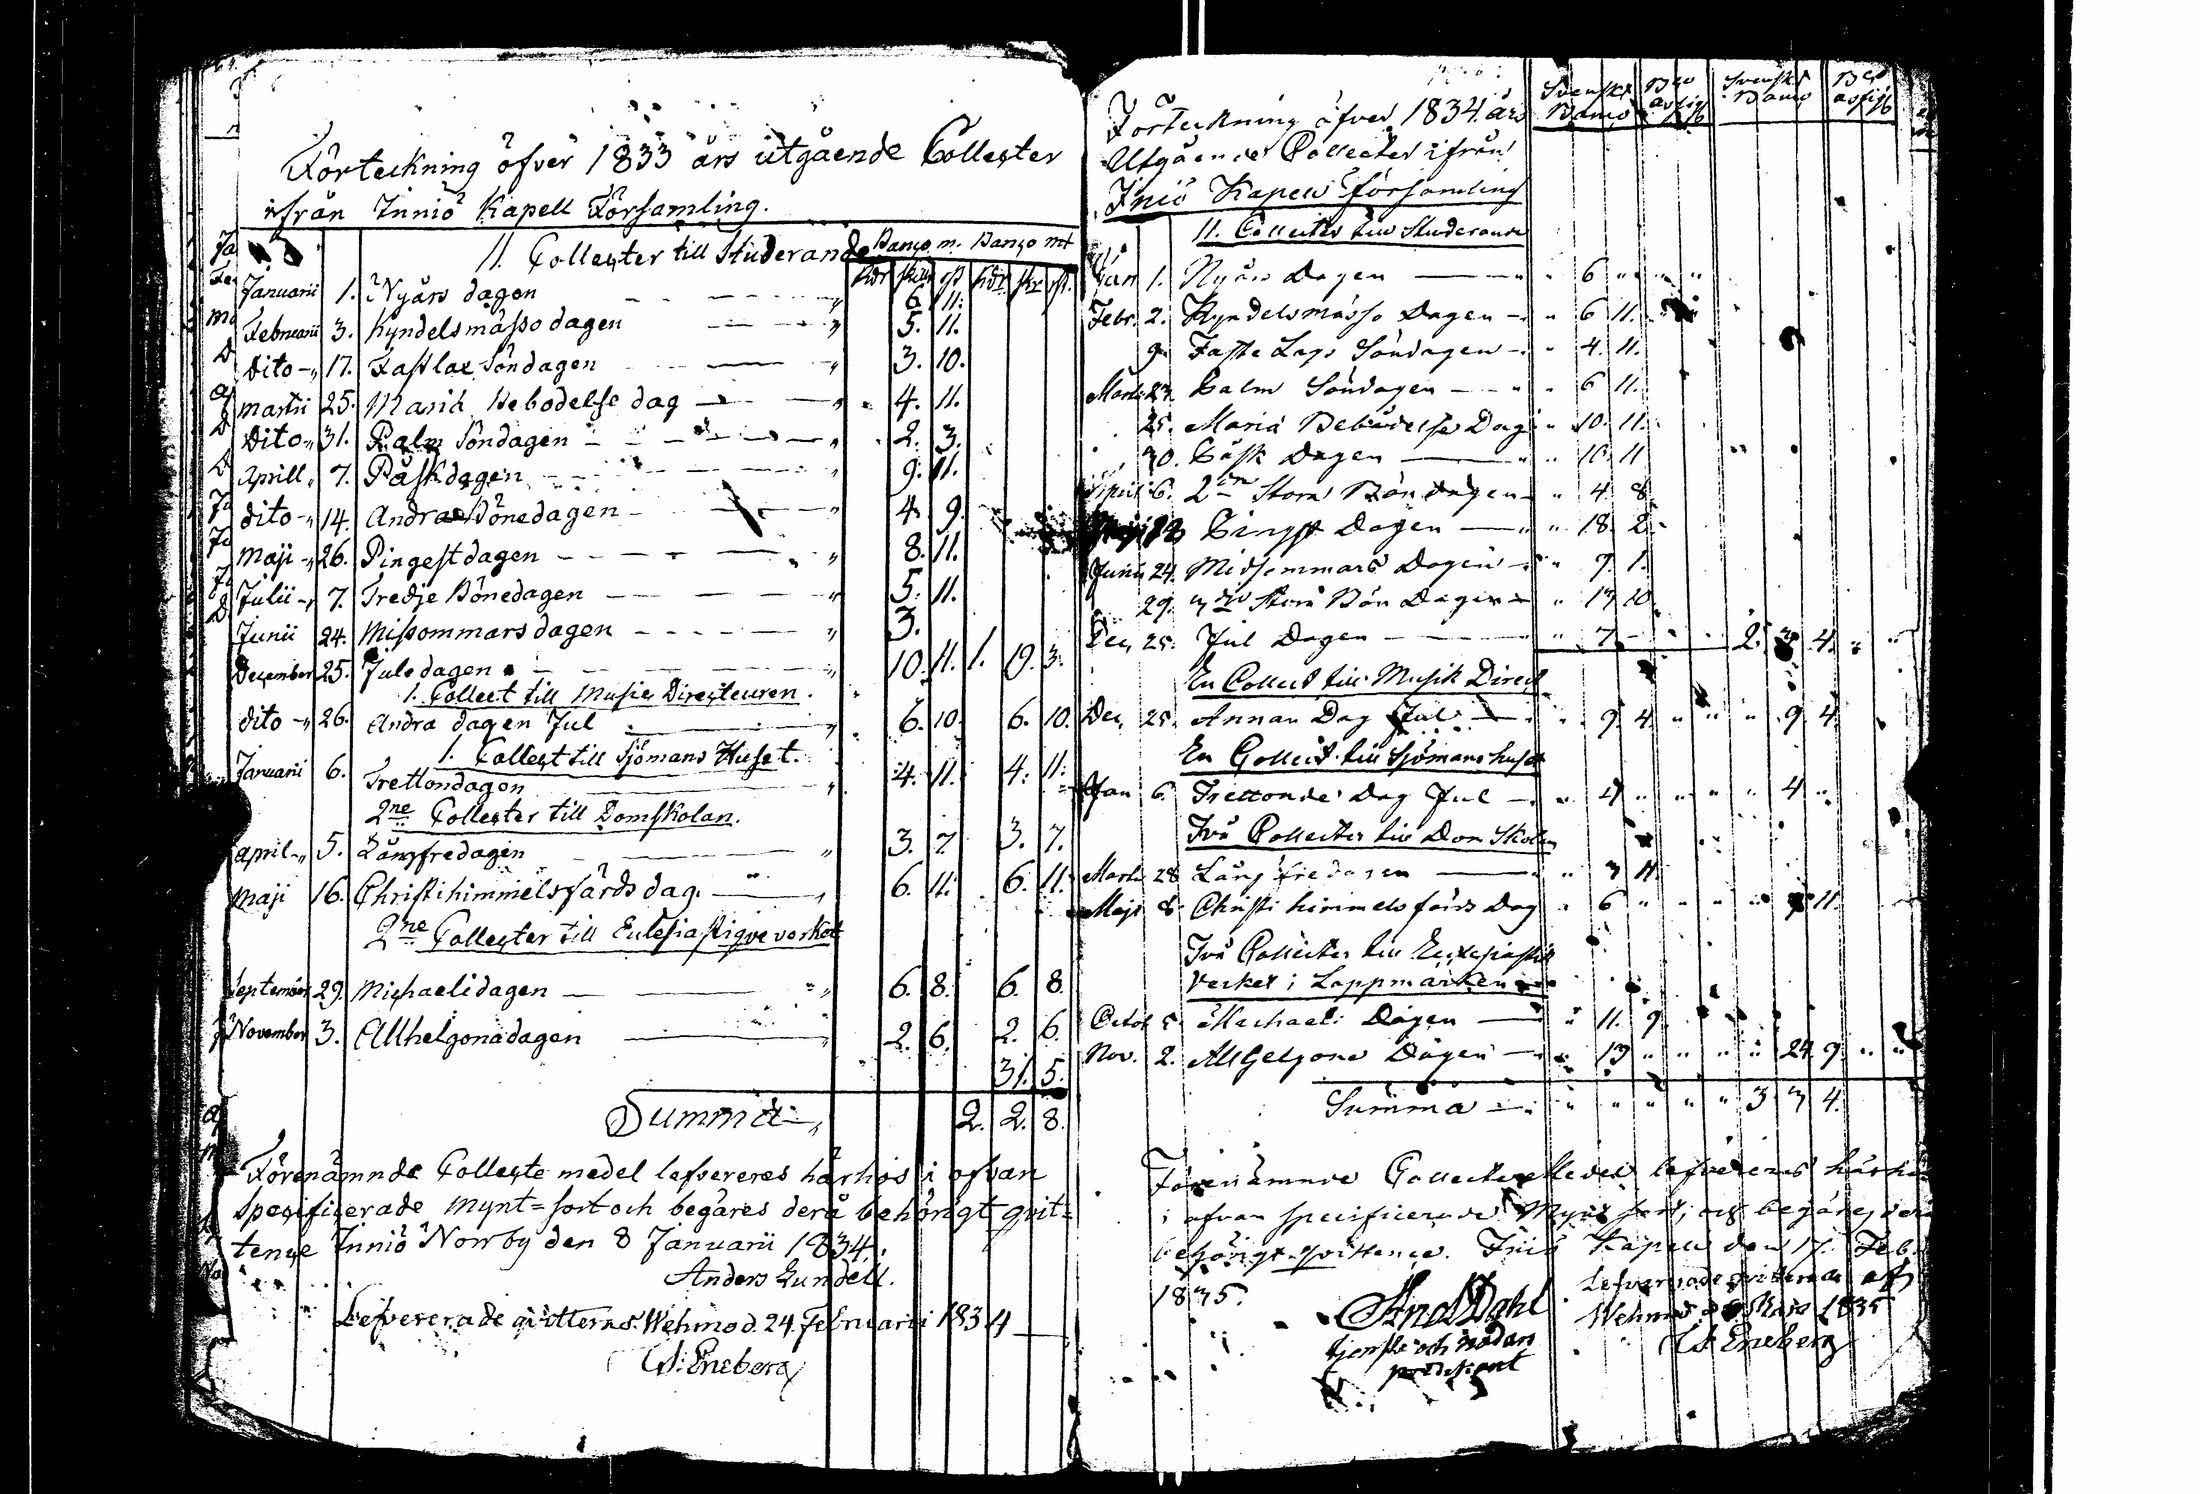 Förteckning öfver 1833 års utgående Collecter
ifrån Inniö Kapell Församling.
11. Collecter till Studerande Banco m. Banco mt
Rdr skill. rst Rdr skr rst.
Januarii 1. Nyårs dagen 6. 11.
Februarii 3. Kyndelsmässo dagen 5. 11.
Dito 17. Fastlax Söndagen 3. 10.
Martii 25. Mariä Bebodelse dag 4. 11.
Dito 31. Palm Söndagen 2. 3.
Aprill 7. Påskdagen 9. 11.
Dito 14. Andra Bönedagen 4. 9.
Maji 26. Pingestdagen 8. 11.
Julii 7. Tredje Bönedagen 5. 11.
Junii 24. Missommarsdagen 3.
December 25. Juledagen 10. 11. 1. 19. 3.
1. Collect till Music Directeuren.
Dito 26. Andra dagen Jul 6. 10. 6. 10.
1. Collect till Sjömans Huset.
Januarii 6. Trettondagen 4. 11. 4. 11.
2ne Collecter till Domskolan.
April 5. Långfredagen 3. 7. 3. 7.
Maji 16. Christihimmelsfärds dag. 6. 11. 6. 11.
2ne Collecter till Eclesiastique verket
September 29. Michaelidagen 6. 8. 6. 8.
November 3. Allhelgonadagen 2. 6. 2. 6.
31. 5.
Summa 2. 2. 8.
Förenämnde Collecte medel lefvereres härhos i ofvan
specificerade mynt=sort och begäres derå behörigt qvit=
tence Inniö Norrby den 8 Januarii 1834.
Anders Lundell.
Lefvererade qvitteras. Wehmo d. 24. Februarii 1834
Eneberg
Förteckning öfver 1834 års
Utgående Collecter ifrån
Iniö Kapell Församling
Svenskt Banco Bco assig Svenskt Banco Bco assig
11. Collecter till Studerande
Jan 1. Nyårs Dagen 6
Febr. 2. Kyndelsmässo Dagen 6 11.
9. Faste Lags Söndagen 4. 11.
Martii 23. Palm Söndagen 6 11.
25. Mariä Bebådelse Dag 10. 11.
30. Påsk Dagen 10 11
April 6. 2dra Stora Bön dagen 4 8
Pingst Dagen 18. 2.
Junii 24. Midsommars Dagen 9. 1.
29. 3dje Stora Bön Dagen 10
Dec. 25. Jul Dagen 7 2. 4.
En Collect till Musik Direct
Dec. 25. Annan Dag Jul 9. 4 9 4.
En Collect till Sjömanshuset
Jan 6. Trettonde Dag Jul 4 4
Två Collecter till Dom Skolan
Martii 28 Långfredagen 3 11.
Maji 8. Christi himmelsfärds Dag 6 11.
Två Collecter till Ecclesiastik
Verket i Lappmarken
Octob 5. Michaeli Dagen 11. 9
Nov. 2. All Helgona Dagen 13 24 9
Summa 3 3 4.
Förenämnde Collecte Medel lefvereras härhos
i ofvan specificerade Mynt sort, och begäres derå
behörigt qvittence. Iniö Kapell den 17. Feb.
1835.
And Dahl
tjenste och nådan
predikant
Lefvererade qvitteras af
Wehmo Mars 1835
Eneberg